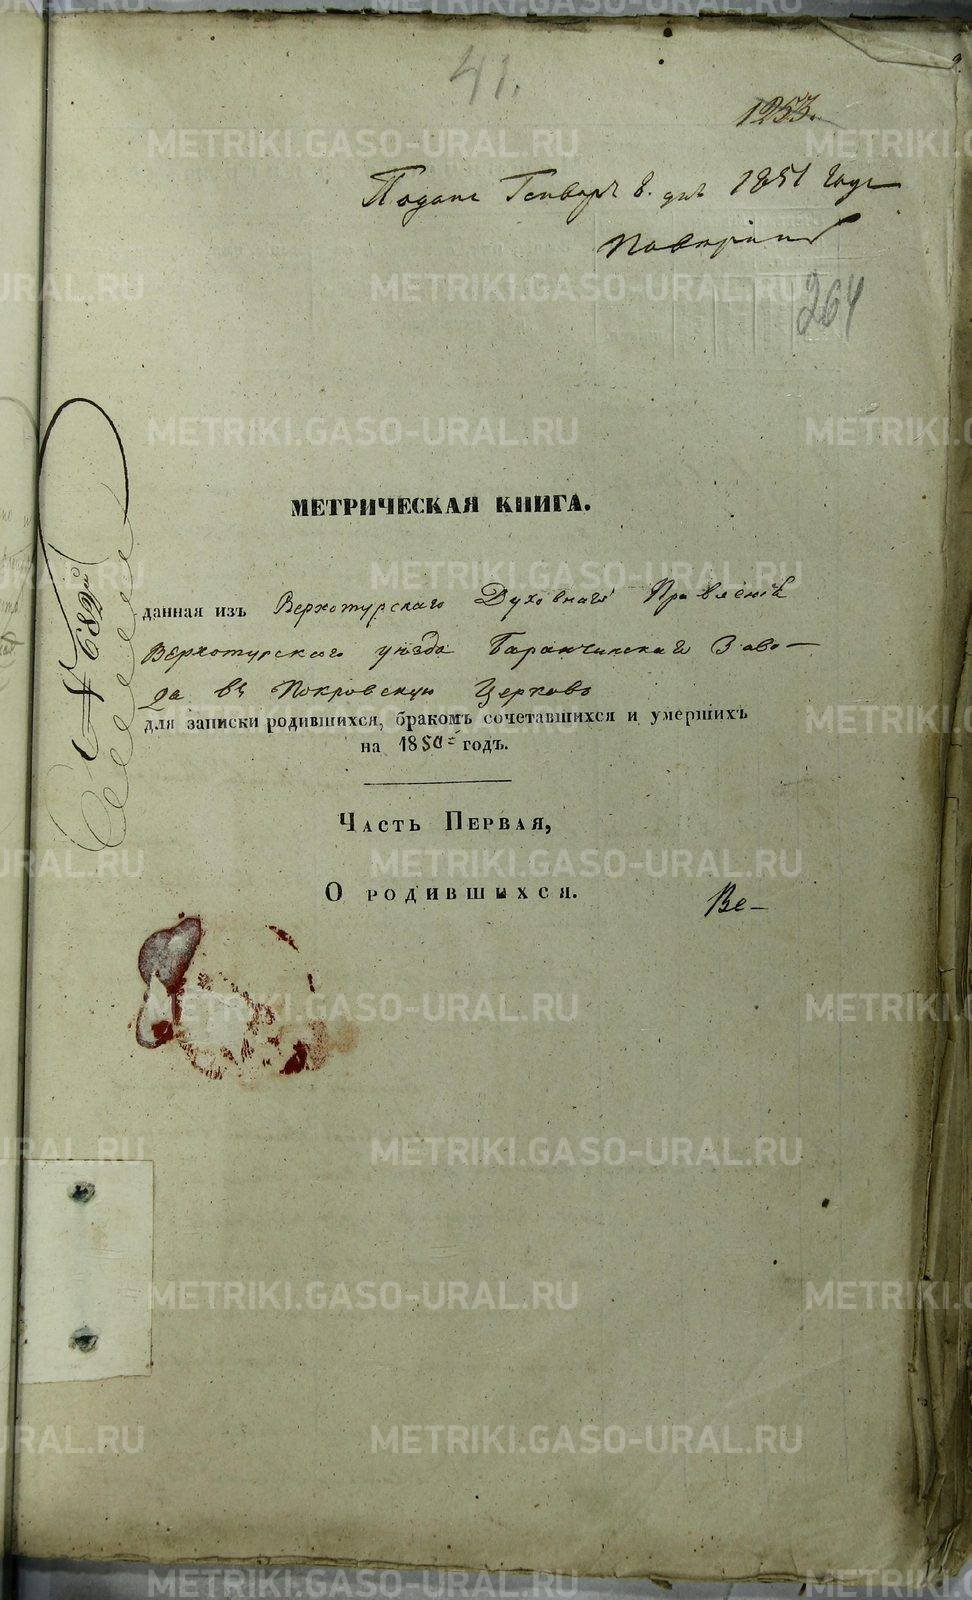 41.
1253.
Подана Генваря 8. дня 1851 года
264
МЕТРИЧЕСКАЯ КНИГА.
данная изъ Верхотурскаго Духовнаго Правленія
Верхотурскаго уѣзда Баранчинскаго Заво-
да въ Покровскую Церковь
для записки родившихся, бракомъ сочетавшихся и умершихъ
на 1850 годъ.
Часть Первая,
О родившихся.
Ве-
№ 682
METRIKI.GASO-URAL.RU